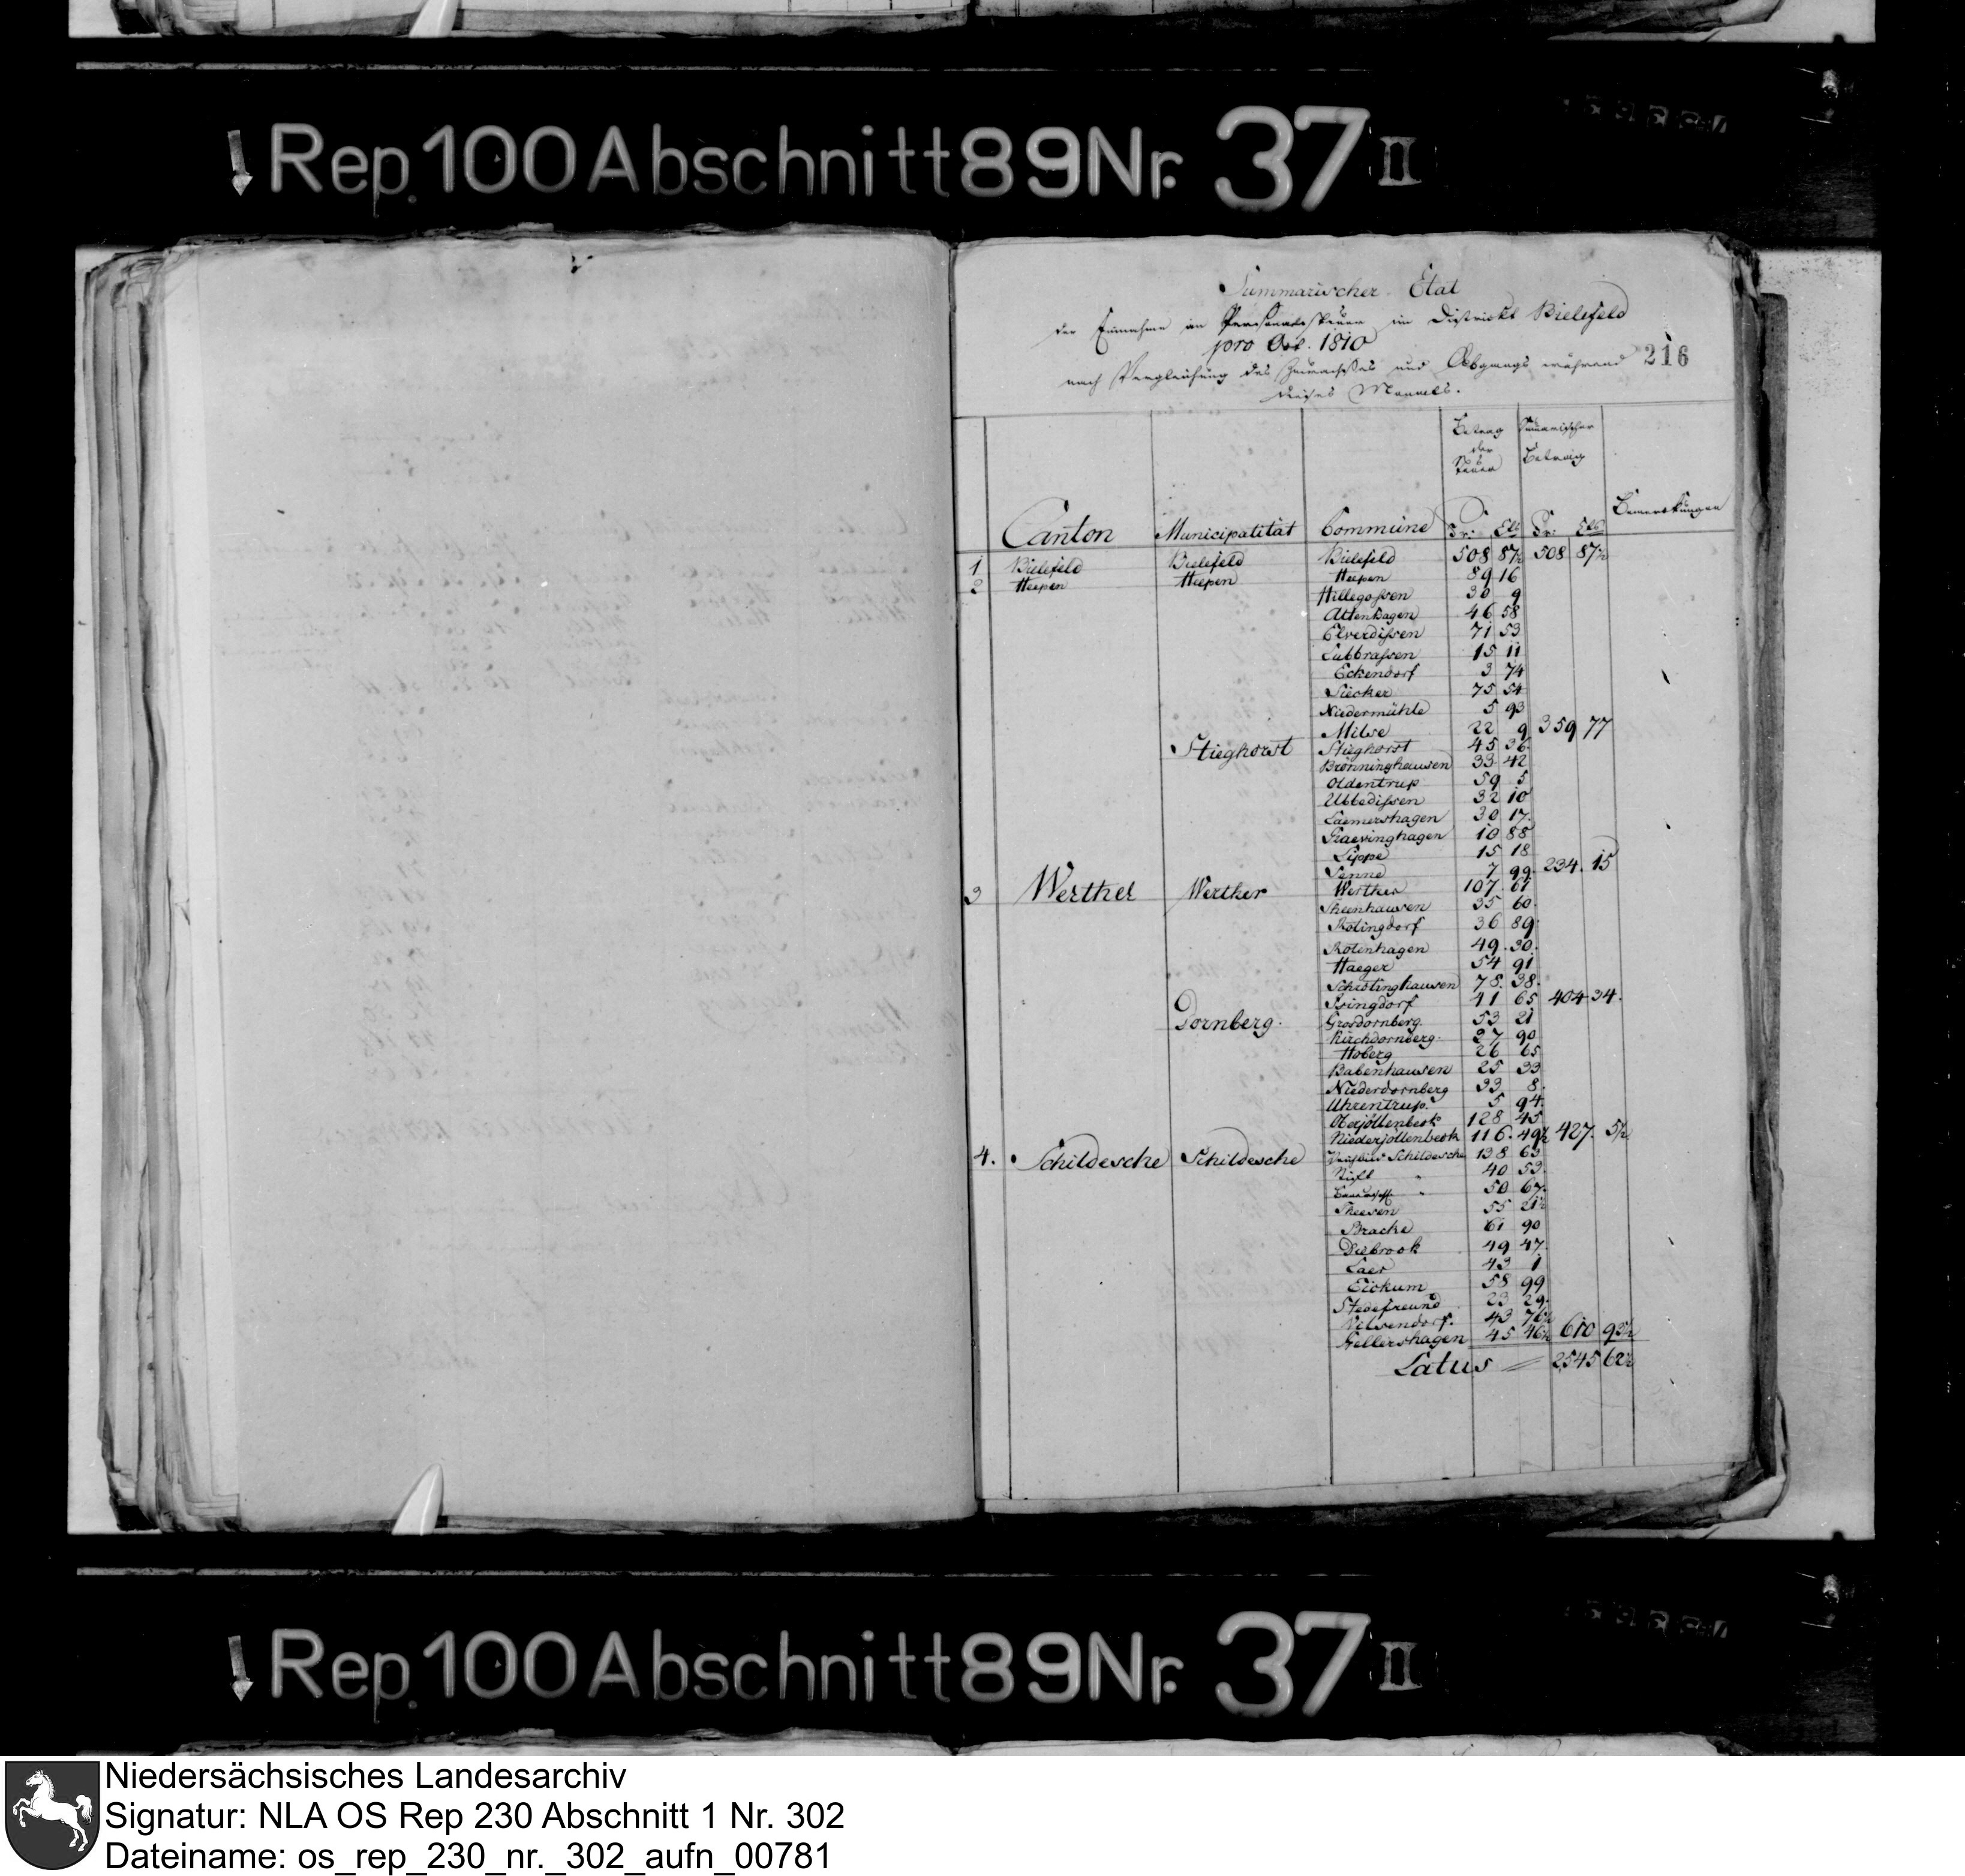 Rep. 100 Abschnitt 89 Nr. 37 II
Summarischer Etat
der Einnahme an Personalsteuer im District Bielefeld
pro Oct. 1810
216
nach Vergleichung des Zuwachses und Abgangs während
dieses Monats.
Canton Municipalität Commüne Betrag der Steuer Fr: Cts Summarischer Betrag Fr: Cts Bemerkungen
1 Bielefeld Bielefeld Bielefeld 508 87½ 508 87½
2 Heepen Heepen Heepen 89 16
Hillegossen 30 9
Altenhagen 46 58
Elverdissen 71 53
Lübbrassen 15 11
Eckendorf 3 74
Siecker 75 54
Niedermühle 5 93
Milse 22 9 359 77
Stieghorst Stieghorst 45 36
Brönninghausen 33 42
Oldentrup 59 5
Ubbedissen 32 10
Laemershagen 30 17
Graevinghagen 10 88
Lippe 15 18
Senne 7 99 234. 15
3 Werther Werther Werther 107. 61
Theenhausen 35 60
Rotingdorf 36 89
Rotenhagen 49. 30.
Haeger 54 91
Schrötinghausen 78. 38.
Isingdorf 41 65 404 34.
Dornberg. Grosdornberg. 53 21
Kirchdornberg. 37 90
Hoberg 26 65
Babenhausen 25 33
Niederdornberg 33 8.
Uhrentrup. 5 94.
Oberjöllenbeck 128 45
Niederjöllenbeck 116. 49½ 427. 5½
4. Schildesche Schildesche Schildesche 138 63
Stift " 40 53.
" 50 67.
Theesen 55 21½
Bracke 61 90
Diebrook 49 47.
Laer 43 1
Eickum 58 99
Stedefreund 23 29.
Vilsendorf. 43 76½
Gellershagen 45 46½ 610 93½
Latus 2545 62½
Rep. 100 Abschnitt 89 Nr. 37 II
Niedersächsisches Landesarchiv
Signatur: NLA OS Rep 230 Abschnitt 1 Nr. 302
Dateiname: os_rep_230_nr._302_aufn_00781